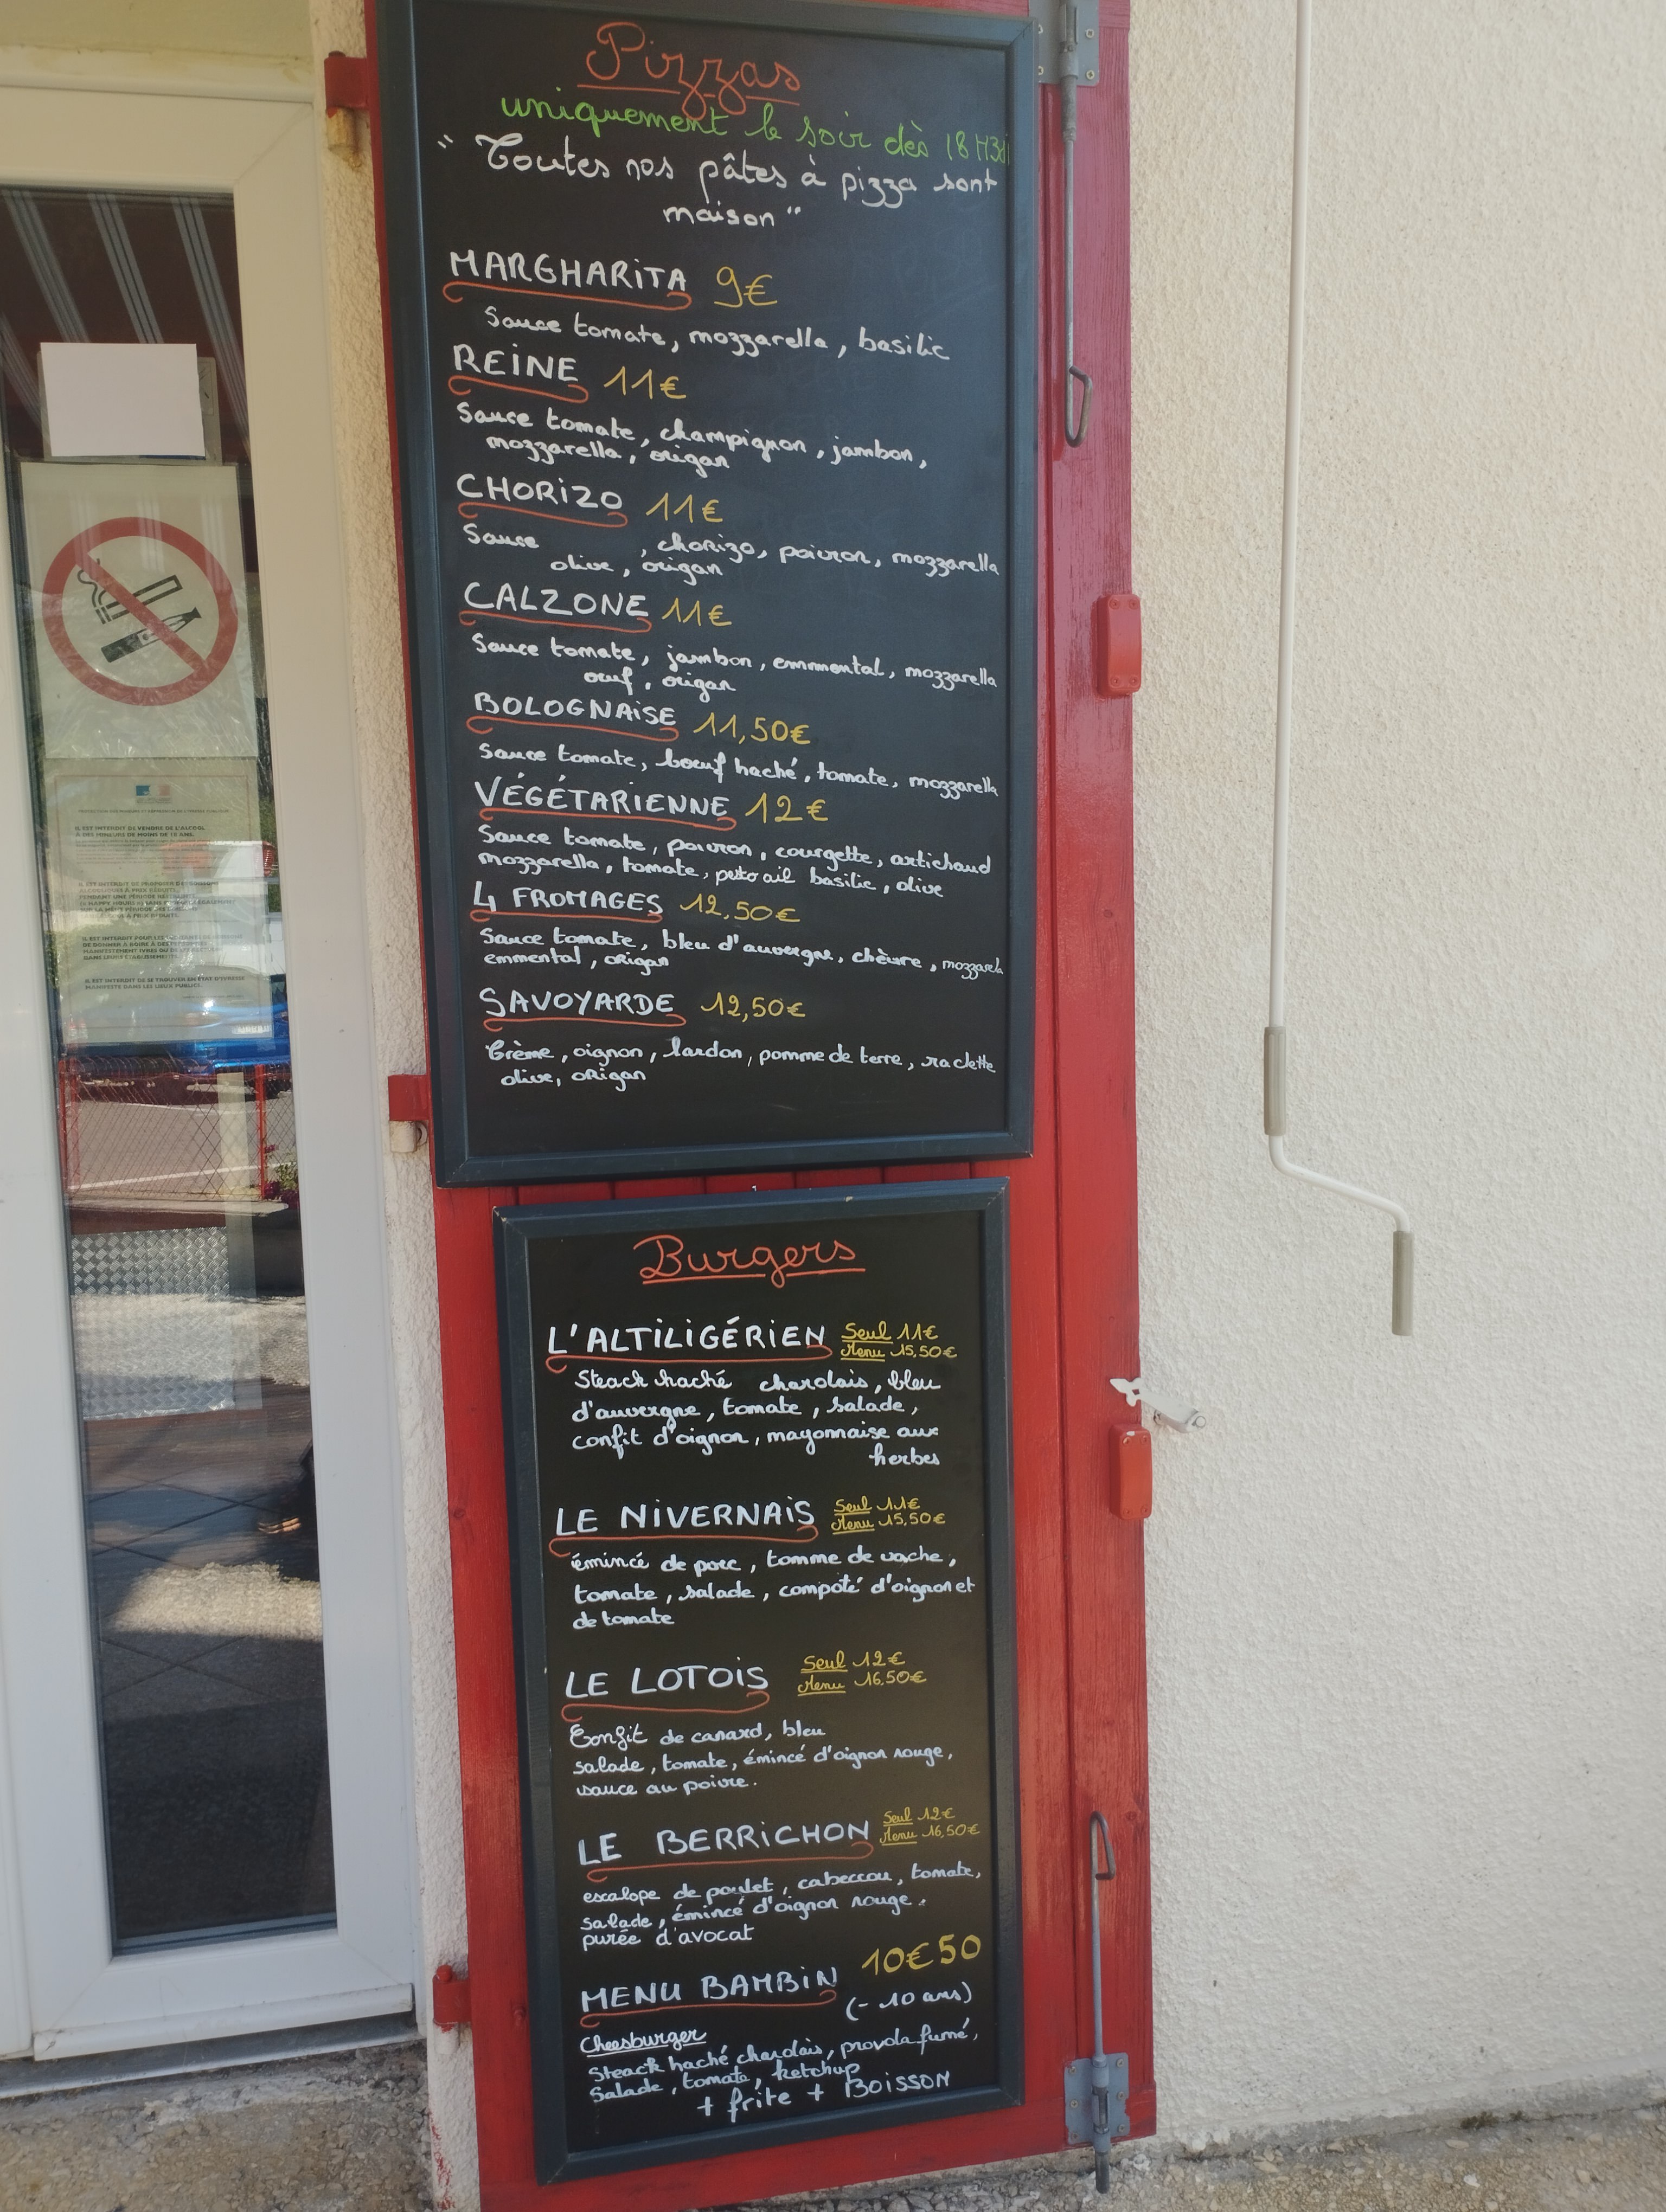 Pizzas
uniquement le soir dès 18H30
" Toutes nos pâtes à pizza sont
maison "
MARGHARITA 9€
Sauce tomate, mozzarella, basilic
REINE 11€
Sauce tomate, champignon, jambon,
mozzarella, origan
CHORIZO 11€
Sauce , chorizo, poivron, mozzarella
olive, origan
CALZONE 11€
Sauce tomate, jambon, emmental, mozzarella
oeuf, origan
BOLOGNAISE 11,50€
Sauce tomate, boeuf haché, tomate, mozzarella
VÉGÉTARIENNE 12€
Sauce tomate, poivron, courgette, artichaud
mozzarella, tomate, pesto ail basilic, olive
4 FROMAGES 12,50€
Sauce tomate, bleu d'auvergne, chèvre, mozzarela
emmental, origan
SAVOYARDE 12,50€
Crème, oignon, lardon, pomme de terre, raclette
olive, origan
Burgers
L'ALTILIGÉRIEN Seul 11€
Menu 15,50€
Steack haché charolais, bleu
d'auvergne, tomate, salade,
confit d'oignon, mayonnaise aux
herbes
LE NIVERNAIS Seul 11€
Menu 15,50€
émincé de porc, tomme de vache,
tomate, salade, compoté d'oignon et
de tomate
LE LOTOIS Seul 12€
Menu 16,50€
Confit de canard, bleu
salade, tomate, émincé d'oignon rouge,
sauce au poivre.
LE BERRICHON Seul 12€
Menu 16,50€
escalope de poulet, cabeccou, tomate,
salade, émincé d'oignon rouge,
purée d'avocat
MENU BAMBIN 10€50
(- 10 ans)
Cheesburger
Steack haché charolais, provola fumé,
Salade, tomate, ketchup
+ frite + BOISSON
IL EST INTERDIT DE VENDRE DE L'ALCOOL
À DES MINEURS DE MOINS DE 18 ANS.
IL EST INTERDIT DE SE TROUVER EN ÉTAT D'IVRESSE
MANIFESTE DANS LES LIEUX PUBLICS.